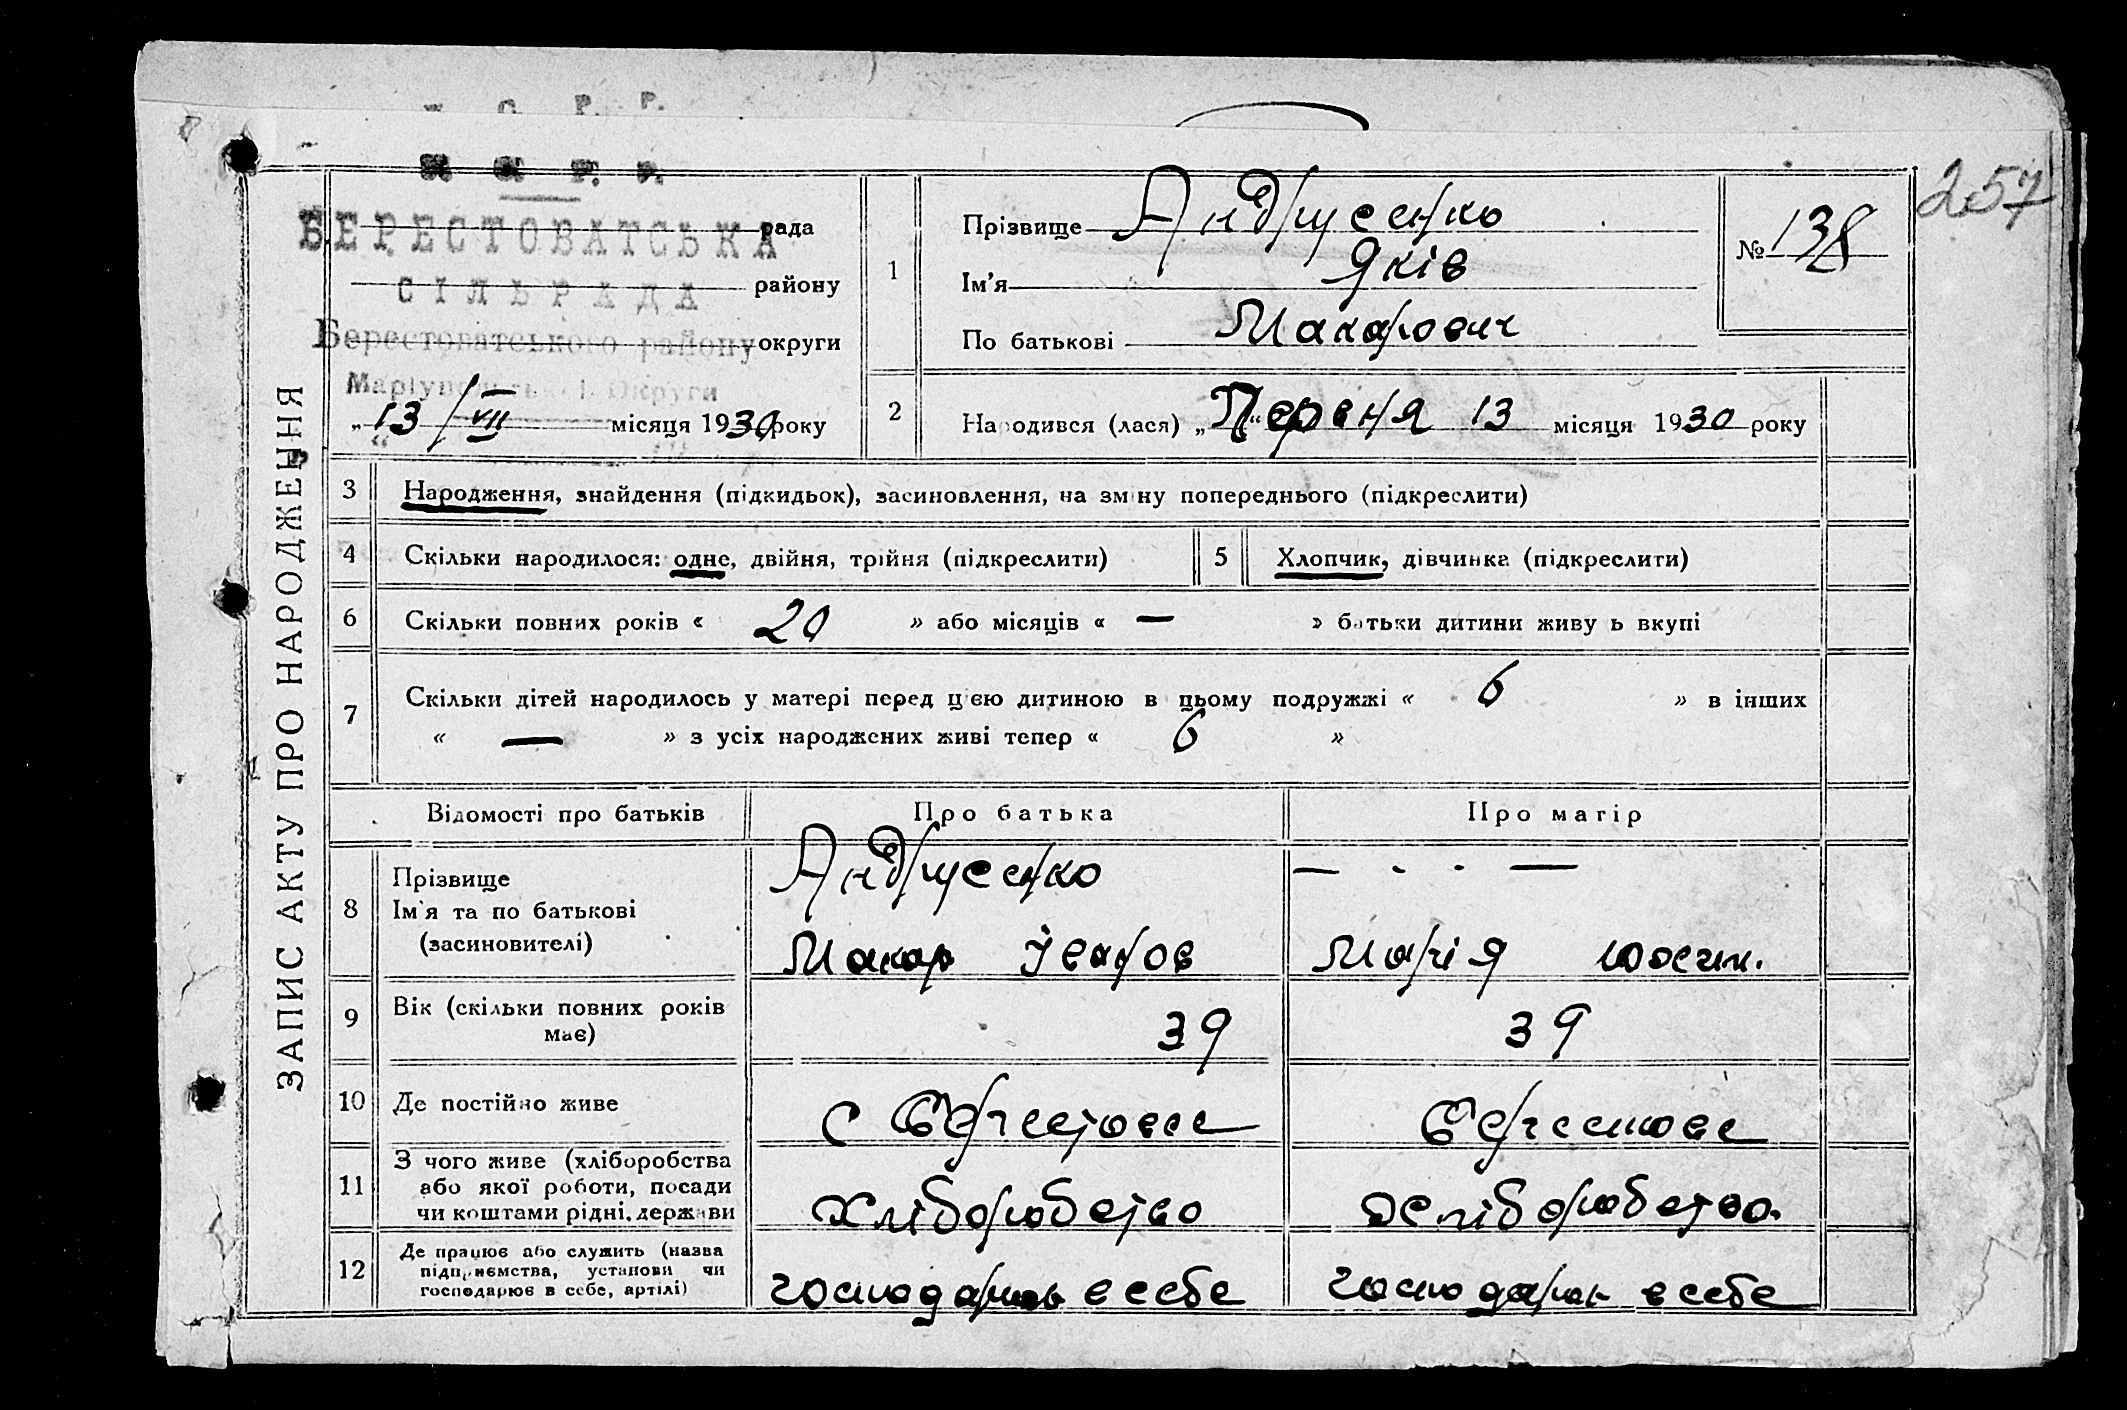 С. Р. Р.
257
БЕРЕСТОВАТСЬКА рада
СІЛЬРАДА району
Берестоватського району округи
Маріупольської Округи
„13/VII місяця 1930 року
1
Прізвище Андрусенко
Ім’я Яків
По батькові Макарович
№ 138
2
Народився (лася) „ 13 місяця 1930 року
ЗАПИС АКТУ ПРО НАРОДЖЕННЯ
3 Народження, знайдення (підкидьок), засиновлення, на зміну попереднього (підкреслити)
4 Скільки народилося: одне, двійня, трійня (підкреслити)
5 Хлопчик, дівчинка (підкреслити)
6 Скільки повних років « 20 » або місяців « — » батьки дитини живуть вкупі
7 Скільки дітей народилось у матері перед цією дитиною в цьому подружжі « 6 » в інших
« — » з усіх народжених живі тепер « 6 »
Відомості про батьків Про батька Про матір
8 Прізвище
Ім’я та по батькові
(засиновителі)
Андрусенко
Макар Іванов
— - - —
Марія
9 Вік (скільки повних років
має)
39
39
10 Де постійно живе
с Берестове
Берестове
11 З чого живе (хліборобства
або якої роботи, посади
чи коштами рідні, держави
Хліборобство
Хліборобство.
12 Де працює або служить (назва
підприємства, установи чи
господарює в себе, артілі)
в себе
в себе